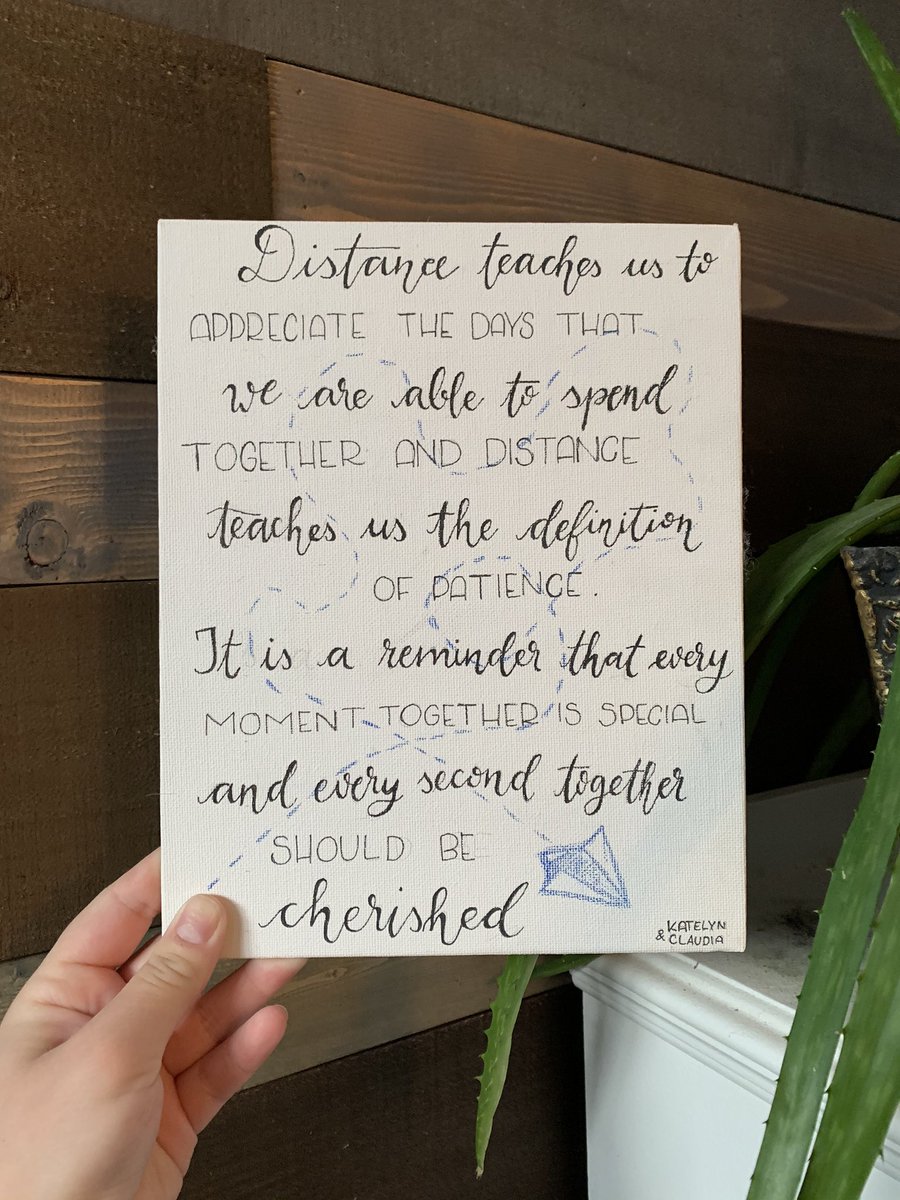 Distance teaches us to
APPRECIATE THE DAYS THAT
we are able to spend
TOGETHER AND DISTANCE
teaches us the definition
OF PATIENCE.
It is a reminder that every
MOMENT TOGETHER IS SPECIAL
and every second together
SHOULD BE
cherished
KATELYN
& CLAUDIA